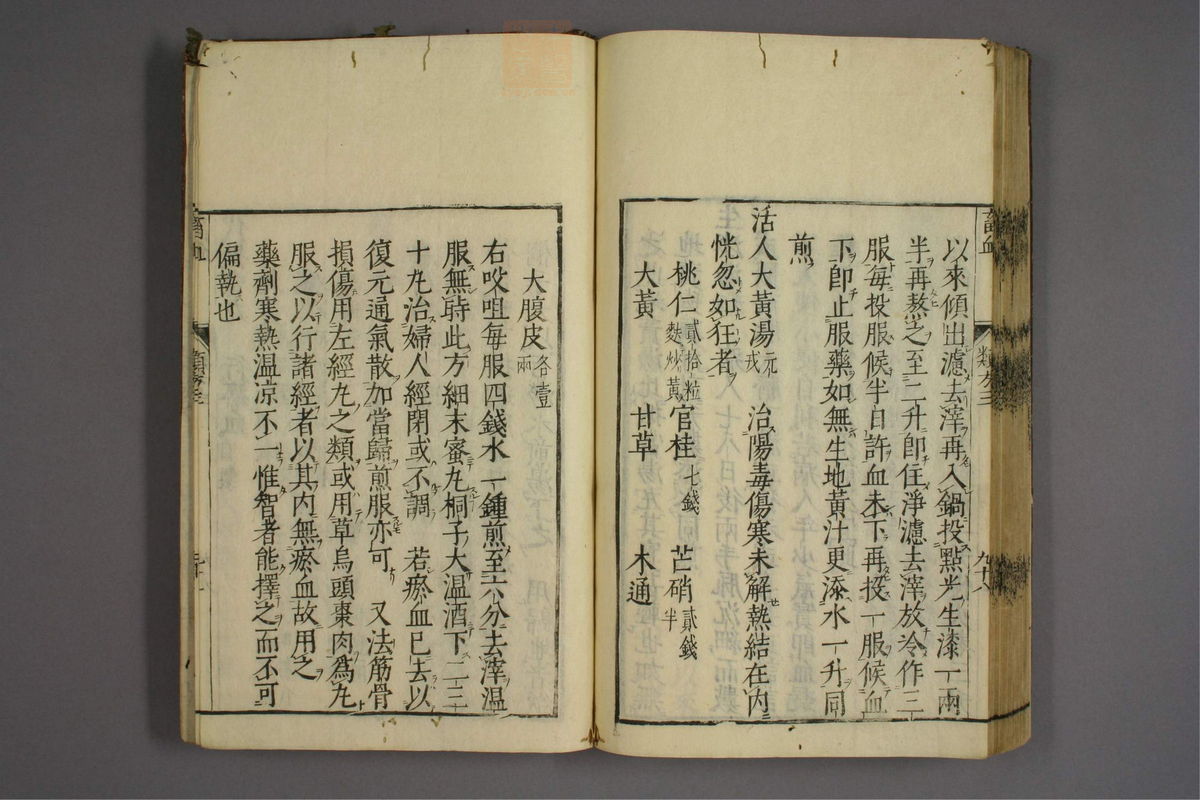 以來傾出濾去滓再入鍋投點光生漆一兩
半再熬之至二升即住淨濾去滓放冷作三
服每投服候半日許血未下再投一服候血
下即止服藥如無生地黃汁更添水一升同
煎
活人大黃湯元戎 治陽毒傷寒未解熱結在內
恍忽如狂者
桃仁貳拾粒麩炒黃 官桂七錢 芒硝貳錢半
大黃 甘草 木通
大腹皮各壹兩
右㕮咀每服四錢水一鍾煎至六分去滓温
服無時此方細末蜜丸桐子大温酒下二三
十丸治婦人經閉或不調 若瘀血已去以
復元通氣散加當歸煎服亦可 又法筋骨
損傷用左經丸之類或用草烏頭棗肉為丸
服之以行諸經者以其内無瘀血故用之
藥劑寒熱温凉不一惟智者能擇之而不可
偏執也